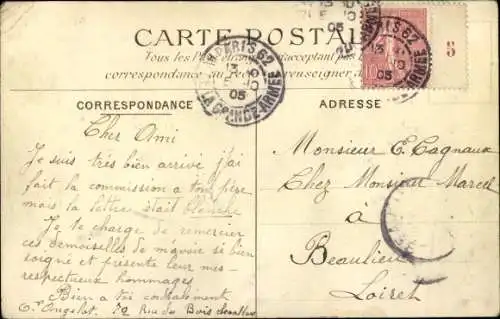 CARTE POSTALE
Tous les Pays
correspondance au
PARIS 62
05
LA GRANDE ARMÉE
PARIS 62
05
ARMEE
10
5
CORRESPONDANCE
ADRESSE
Cher Ami
Je suis très bien arrivé j'ai
fait la commission a ton père
mais la lettre était blanche
Je te charge de remercier
ces demoiselles de m'avoir si bien
soigné et présente leur mes
respectueux hommages
Bien a toi cordialement
79 Rue du Bois
Monsieur E. Cagnaux
Chez Monsieur Marcel
à
Beaulieu
Loiret